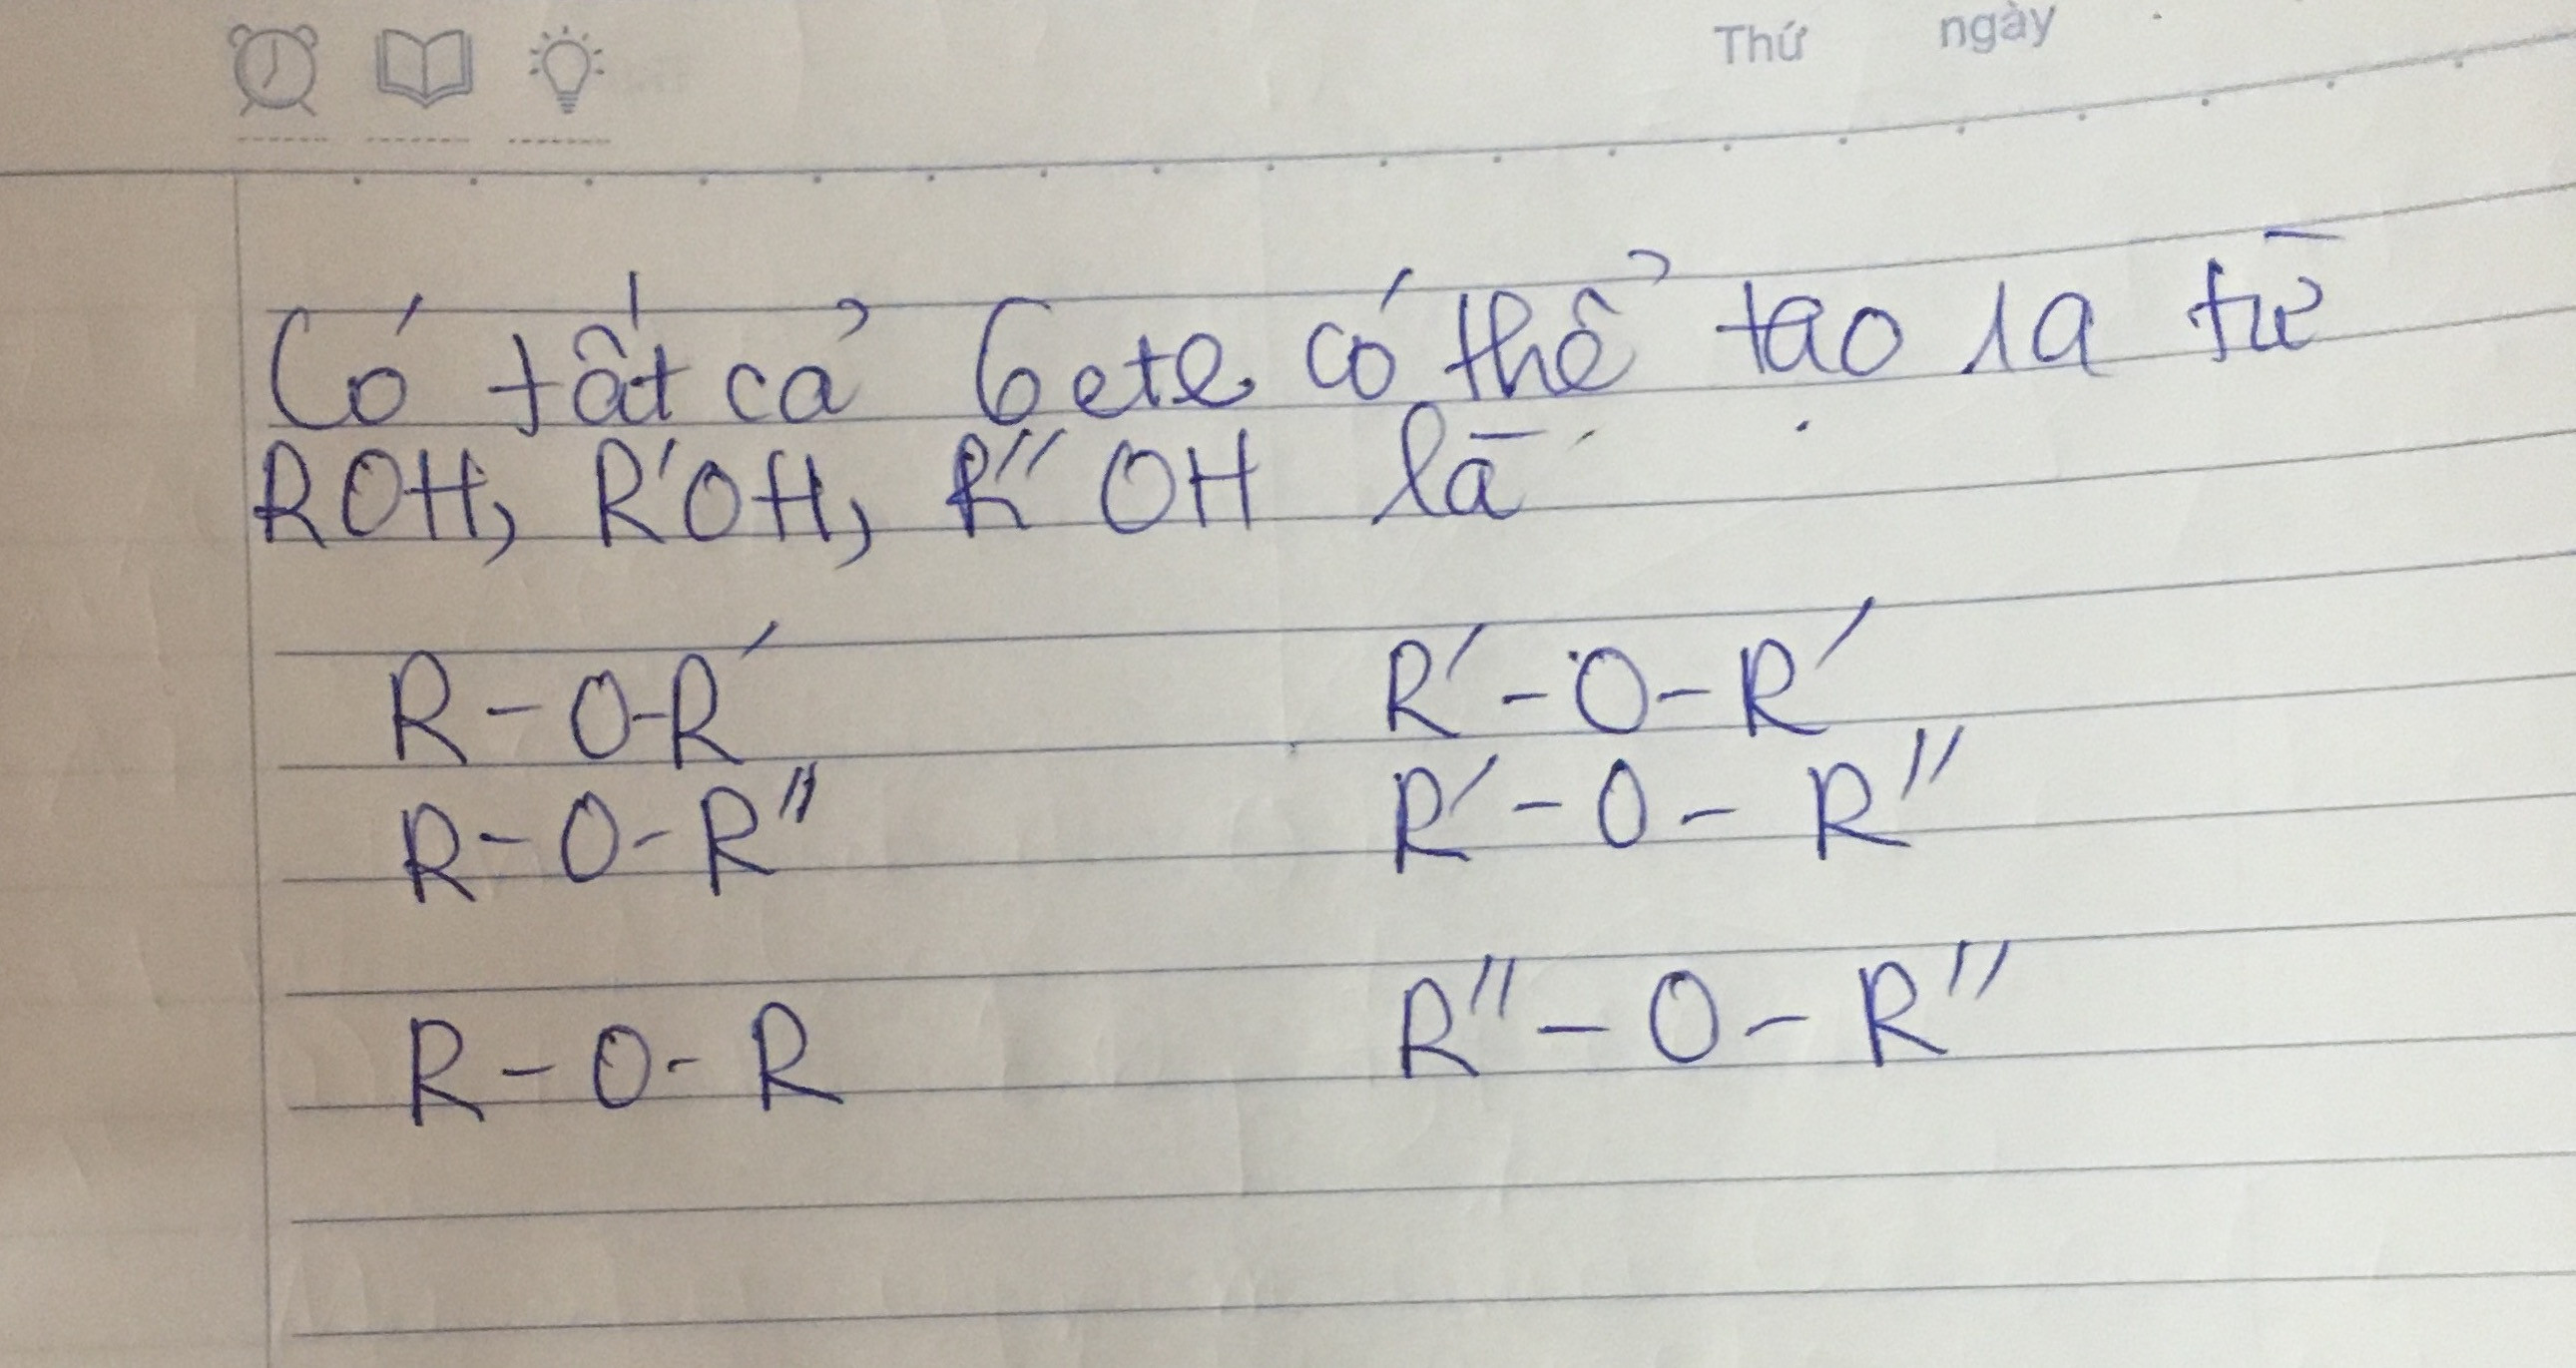 Thứ ngày
Có tất cả 6 ete có thể tạo ra từ
ROH, R'OH, R''OH là
R-O-R' R'-O-R'
R-O-R'' R'-O-R''
R-O-R R''-O-R''